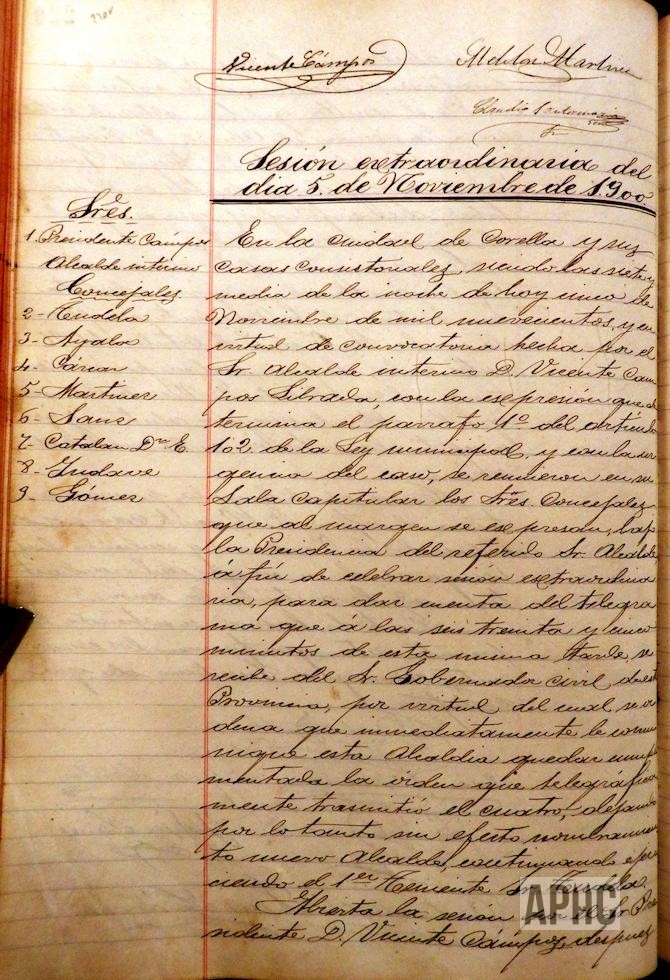 Vicente Cámpos
Sesión extraordinaria del
dia 5 de Noviembre de 1900
Sres.
1 Presidente Cámpos
Alcalde interino
Concejales
2- Tudela
3- Ayala
4-
5- Martinez
6- Sanz
7- Catalan Dn E
8-
9- Gómez
En la ciudad de Corella y sus
casas consistoriales, siendo las siete y
media de la noche de hoy cinco de
Noviembre de mil nuevecientos, y en
virtud de convocatoria hecha por el
Sr. Alcalde interino D. Vicente Cam
pos Librada, con la espresión que de
termina el parrafo 1º del artículo
102 de la Ley municipal, y con la ur
gencia del caso, se reunieron en su
Sala capitular los Srēs. Concejales
que al margen se espresan, bajo
la Presidencia del referido Sr. Alcalde
á fin de celebrar sesión extraordina
ria, para dar cuenta del telegra
ma que á las seis treinta y cinco
minutos de esta misma tarde, se
recibe del Sr. Gobernador civil de esta
Provincia, por virtud del cual se or
dena que inmediatamente le comu
nique esta Alcaldia quedar cumpli
mentada la órden que telegráfica
mente trasmitió el cuatro, dejando
por lo tanto sin efecto nombramien
to nuevo Alcalde, continuando ejer
ciendo el 1er Teniente Sr. Tudela.
Abierta la sesión por el Sr Pre
sidente D. Vicente Cámpos, despues
APHC